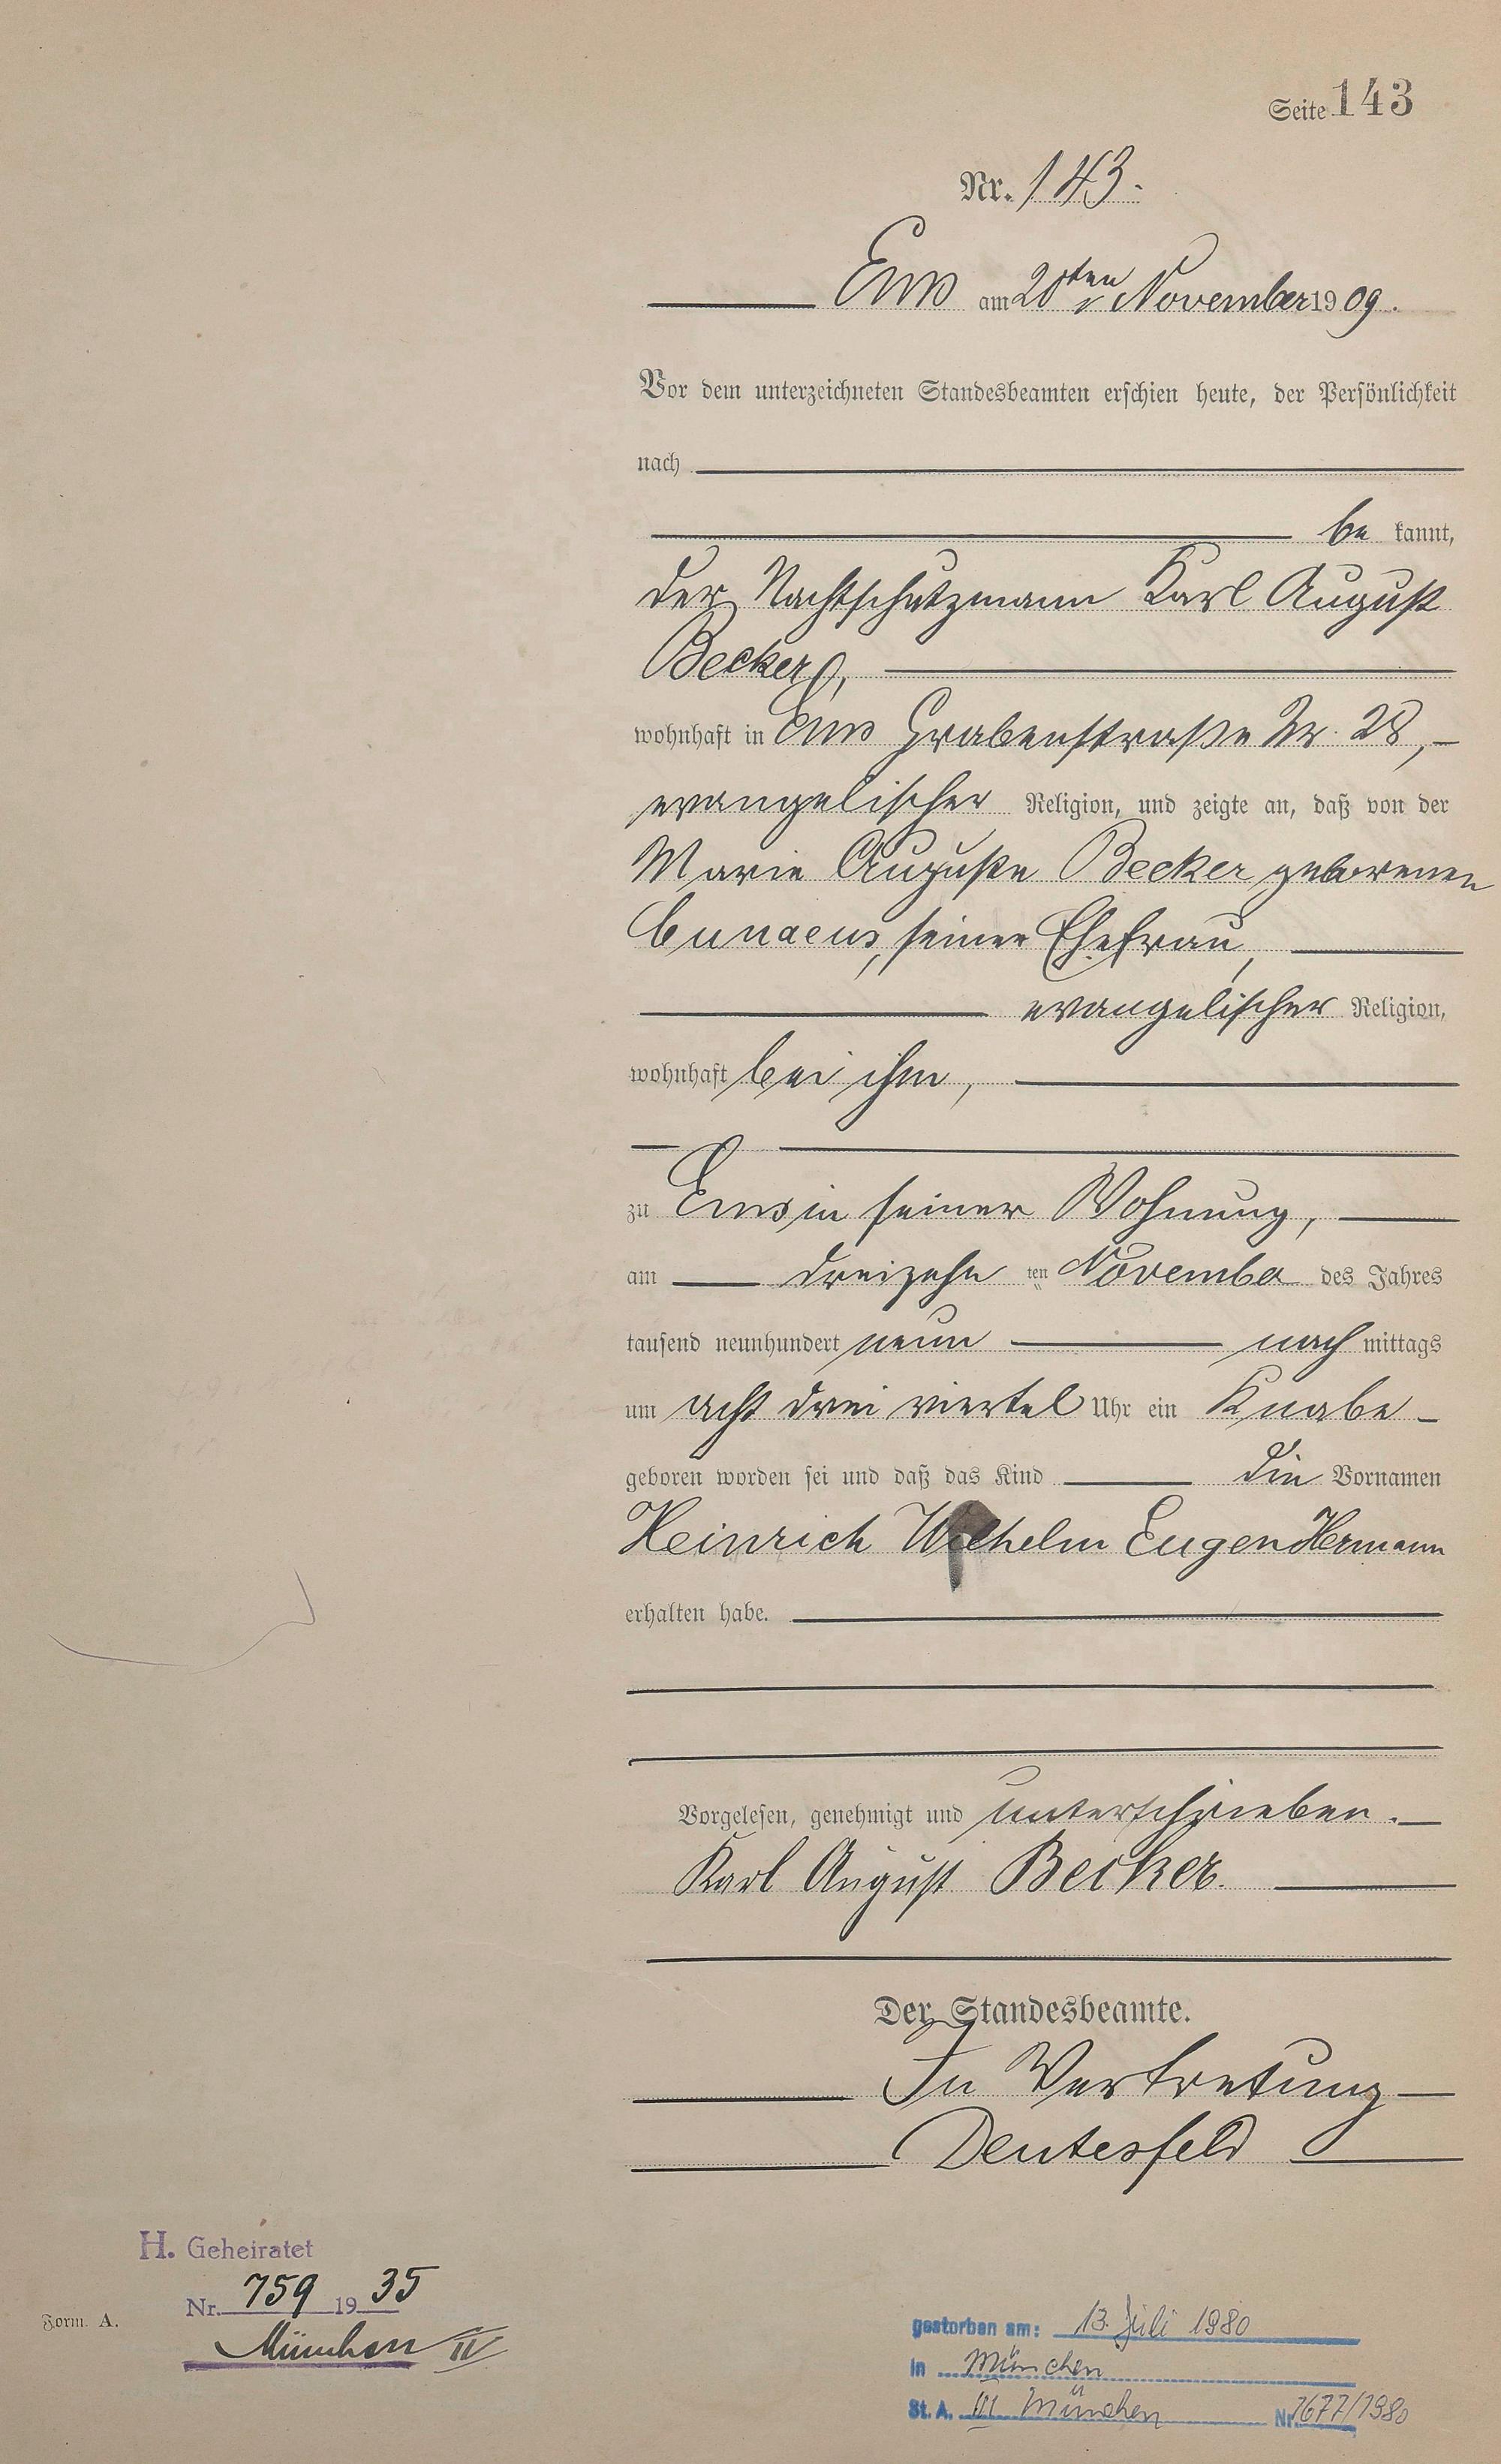 Seite 143
Nr. 143.
Ems am 20ten November 1909.
Vor dem unterzeichneten Standesbeamten erschien heute, der Persönlichkeit
nach
be kannt,
der Nachtschutzmann Karl August
Becker,
wohnhaft in Ems Grabenstraße Nr. 28,
evangelischer Religion, und zeigte an, daß von der
Marie Auguste Becker geborenen
Cunaeus, seiner Ehefrau,
evangelischer Religion,
wohnhaft bei ihm,
zu Ems in seiner Wohnung,
am dreizehn ten November des Jahres
tausend neunhundert neun nach mittags
um acht drei viertel Uhr ein Knabe
geboren worden sei und daß das Kind die Vornamen
Heinrich Wilhelm Eugen Hermann
erhalten habe.
Vorgelesen, genehmigt und unterschrieben.
Karl August Becker.
Der Standesbeamte.
In Vertretung
Deutesfeld
H. Geheiratet
Nr. 759 1935
München IV
Form. A.
gestorben am: 13. Juli 1980
in München
St. A. III München Nr. 1677/1980